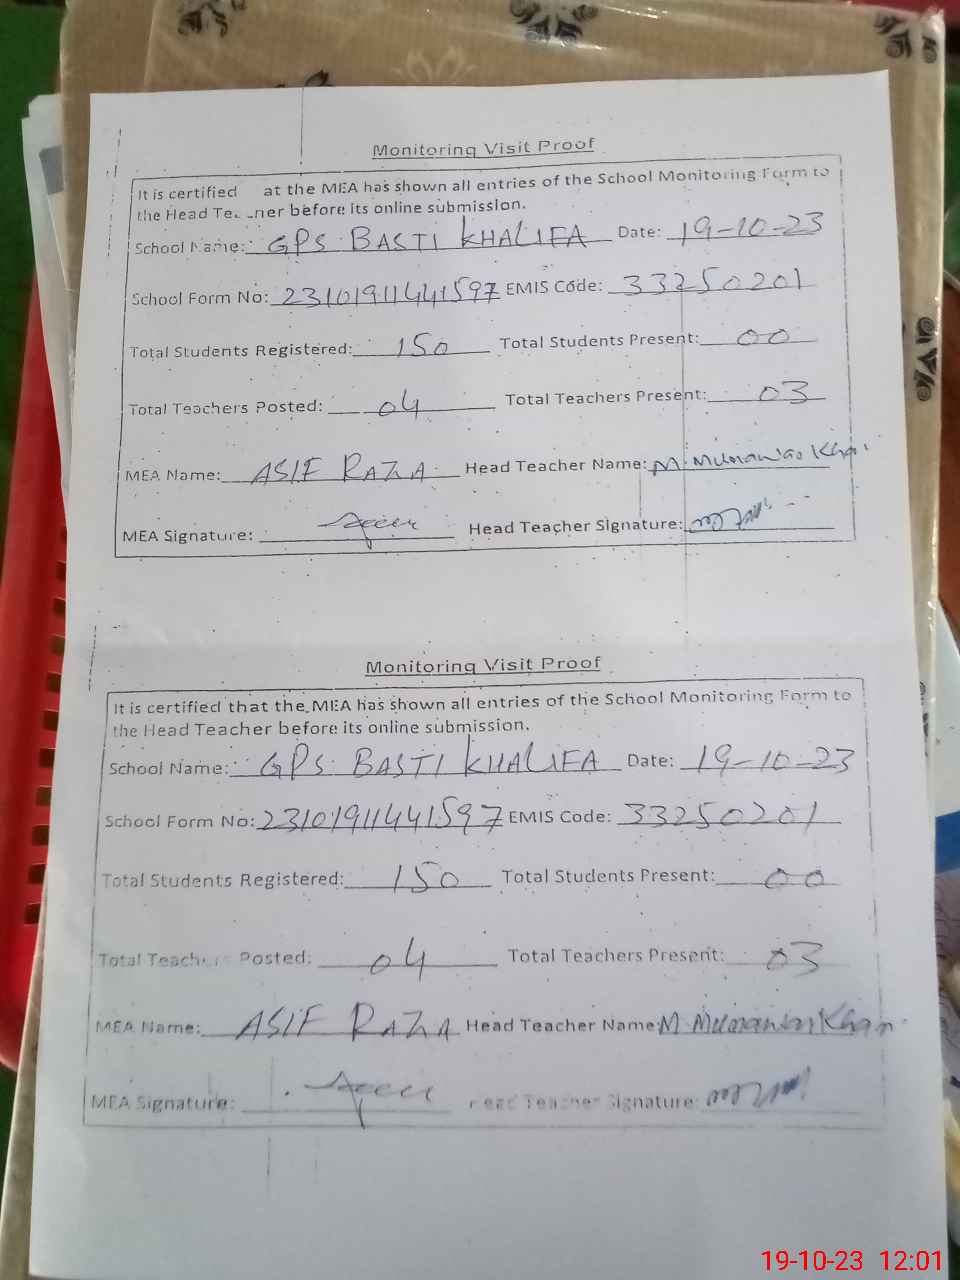 Monitoring Visit Proof
It is certified at the MEA has shown all entries of the School Monitoring Form to
the Head Te. .ner before its online submission.
School Name: GPS BASTI KHALIFA Date: 19-10-23
School Form No: 23101911441597 EMIS Code: 33250201
Total Students Registered: 150 Total Students Present: 00
Total Teachers Posted: 04 Total Teachers Present: 03
MEA Name: ASIF RAZA Head Teacher Name: M. Munawar Khan
MEA Signature: Head Teacher Signature:
Monitoring Visit Proof
It is certified that the MEA has shown all entries of the School Monitoring Form to
the Head Teacher before its online submission.
School Name: GPS BASTI KHALIFA Date: 19-10-23
School Form No: 23101911441597 EMIS Code: 33250201
Total Students Registered: 150 Total Students Present: 00
Total Teachers Posted: 04 Total Teachers Present: 03
MEA Name: ASIF RAZA Head Teacher Name: M. Munawar Khan
MEA Signature: Head Teacher Signature:
19-10-23 12:01